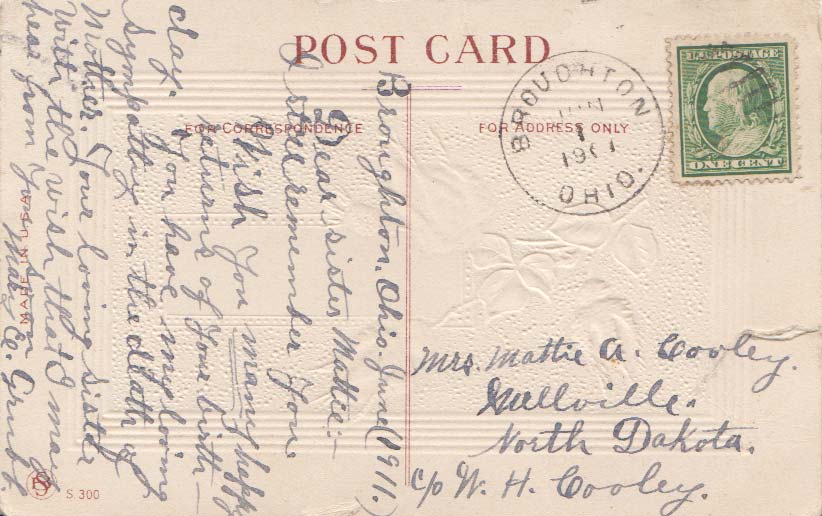 POST CARD
FOR CORRESPONDENCE
FOR ADDRESS ONLY
BROUGHTON
JUN
1
191
OHIO.
U.S. POSTAGE
ONE CENT
Broughton, Ohio. June 1911.
Dear sister Mattie:-
I still remember You.
Wish You many happy
returns of Your birth-
day. You have my loving
sympathy in the death of
Mother. Your loving sister
With the wish that I may
hear from You soon
Mary E.
Mrs. Mattie A. Cooley.
North Dakota.
c/o W. H. Cooley.
MADE IN U.S.A.
S. 300